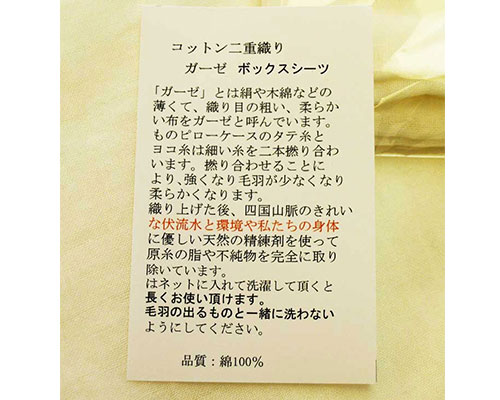 コットン二重織り
ガーゼ ボックスシーツ
「ガーゼ」とは絹や木綿などの
薄くて、織り目の粗い、柔らか
い布をガーゼと呼んでいます。
ものピローケースのタテ糸と
ヨコ糸は細い糸を二本撚り合わ
います。撚り合わせることに
より、強くなり毛羽が少なくなり
柔らかくなります。
織り上げた後、四国山脈のきれい
な伏流水と環境や私たちの身体
に優しい天然の精練剤を使って
原糸の脂や不純物を完全に取り
除いています。
はネットに入れて洗濯して頂くと
長くお使い頂けます。
毛羽の出るものと一緒に洗わない
ようにしてください。
品質：綿100%